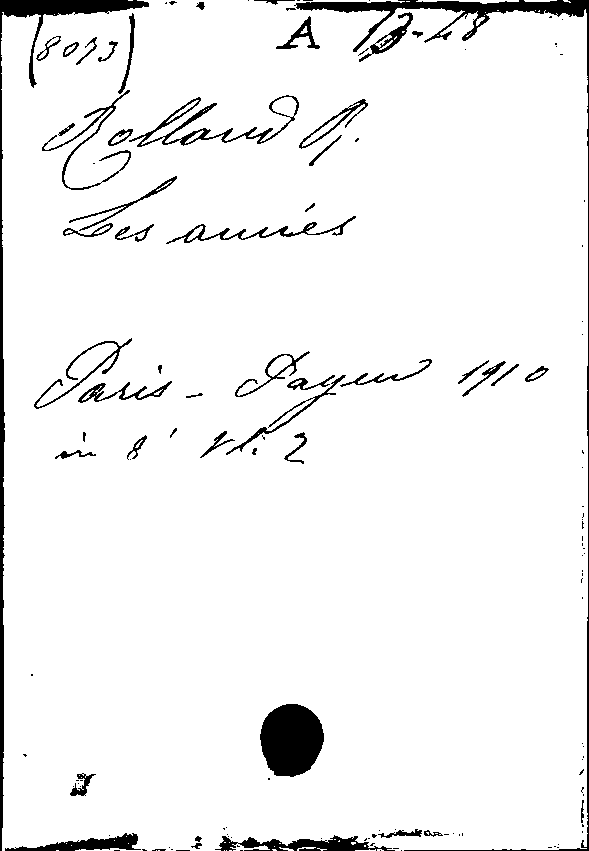 (8073) A 13-48
Rolland R.
Les amiés
Paris - Payen 1910
in 8° Vl. 2